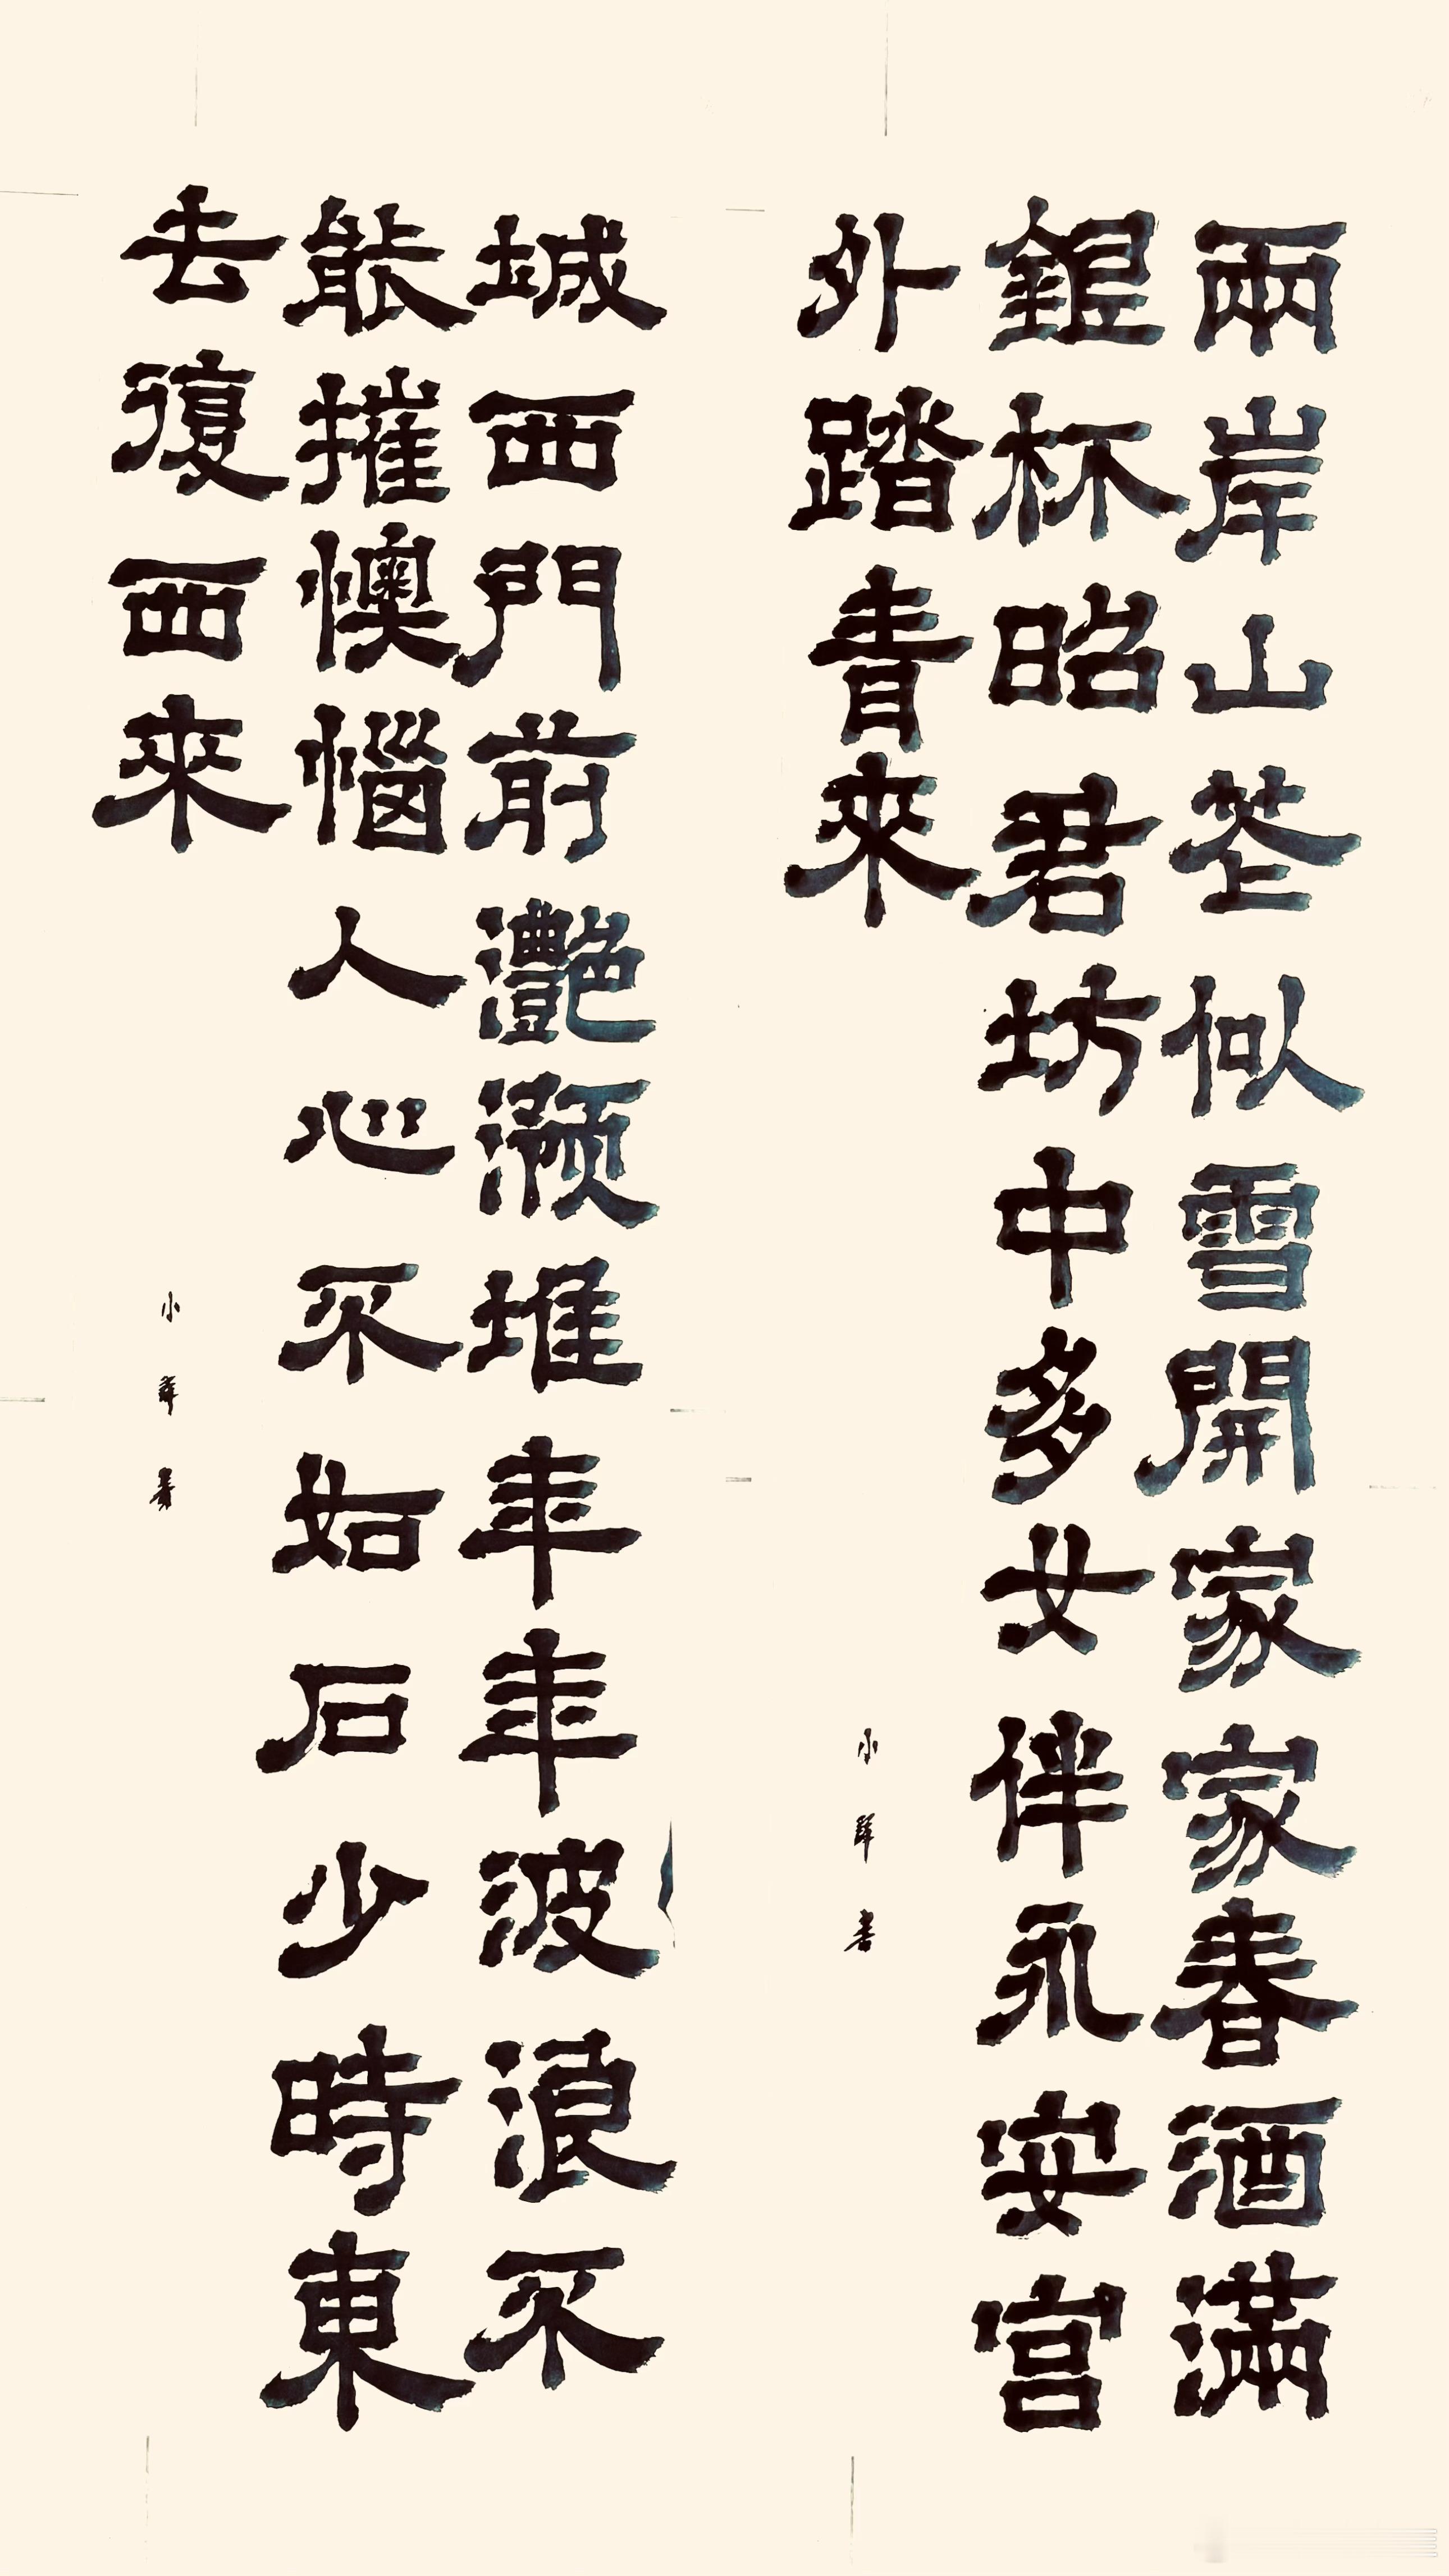 兩岸山花似雪開家家春酒滿
銀杯昭君坊中多女伴永安宮
外踏青來
小書
城西門前灧澦堆年年波浪不
能摧懊惱人心不如石少時東
去復西來
小書